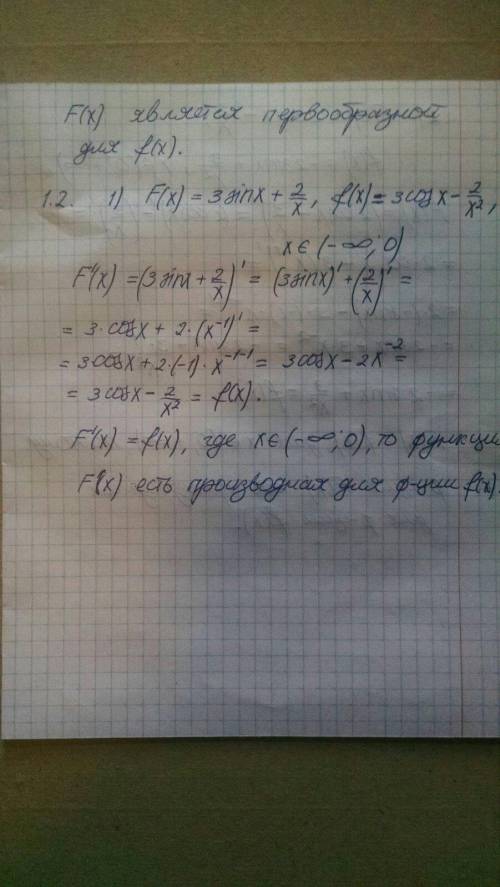 F(x) является первообразной
для f(x).
1.2. 1) F(x) = 3sinx + 2/x, f(x) = 3cosx - 2/x²,
x ∈ (-∞; 0)
F'(x) = (3sinx + 2/x)' = (3sinx)' + (2/x)' =
= 3·cosx + 2·(x⁻¹)' =
= 3cosx + 2·(-1)·x⁻¹⁻¹ = 3cosx - 2x⁻² =
= 3cosx - 2/x² = f(x).
F'(x) = f(x), где x ∈ (-∞; 0), то функци
F'(x) есть производная для ф-ции f(x).